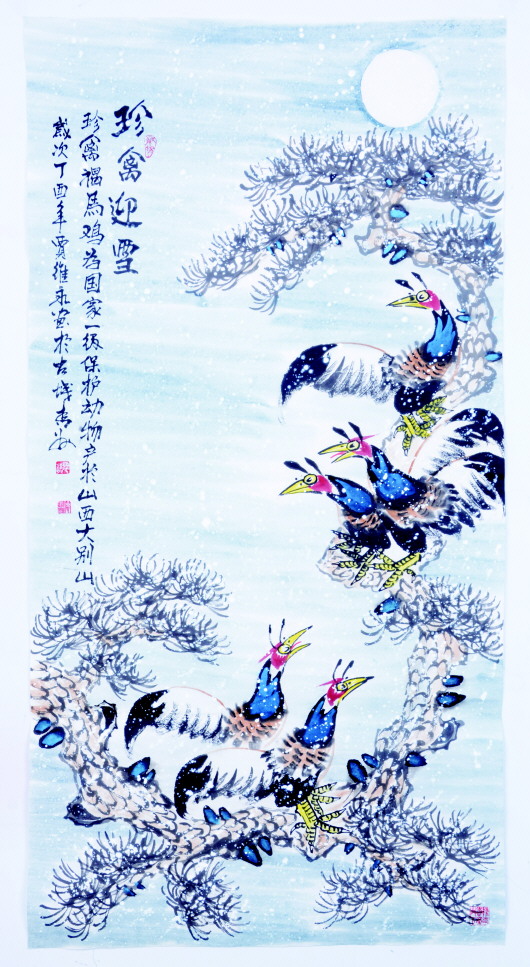 珍禽迎雪
珍禽褐马鸡为国家一级保护动物产于山西大别山
岁次丁酉年贾维永画于古城青州